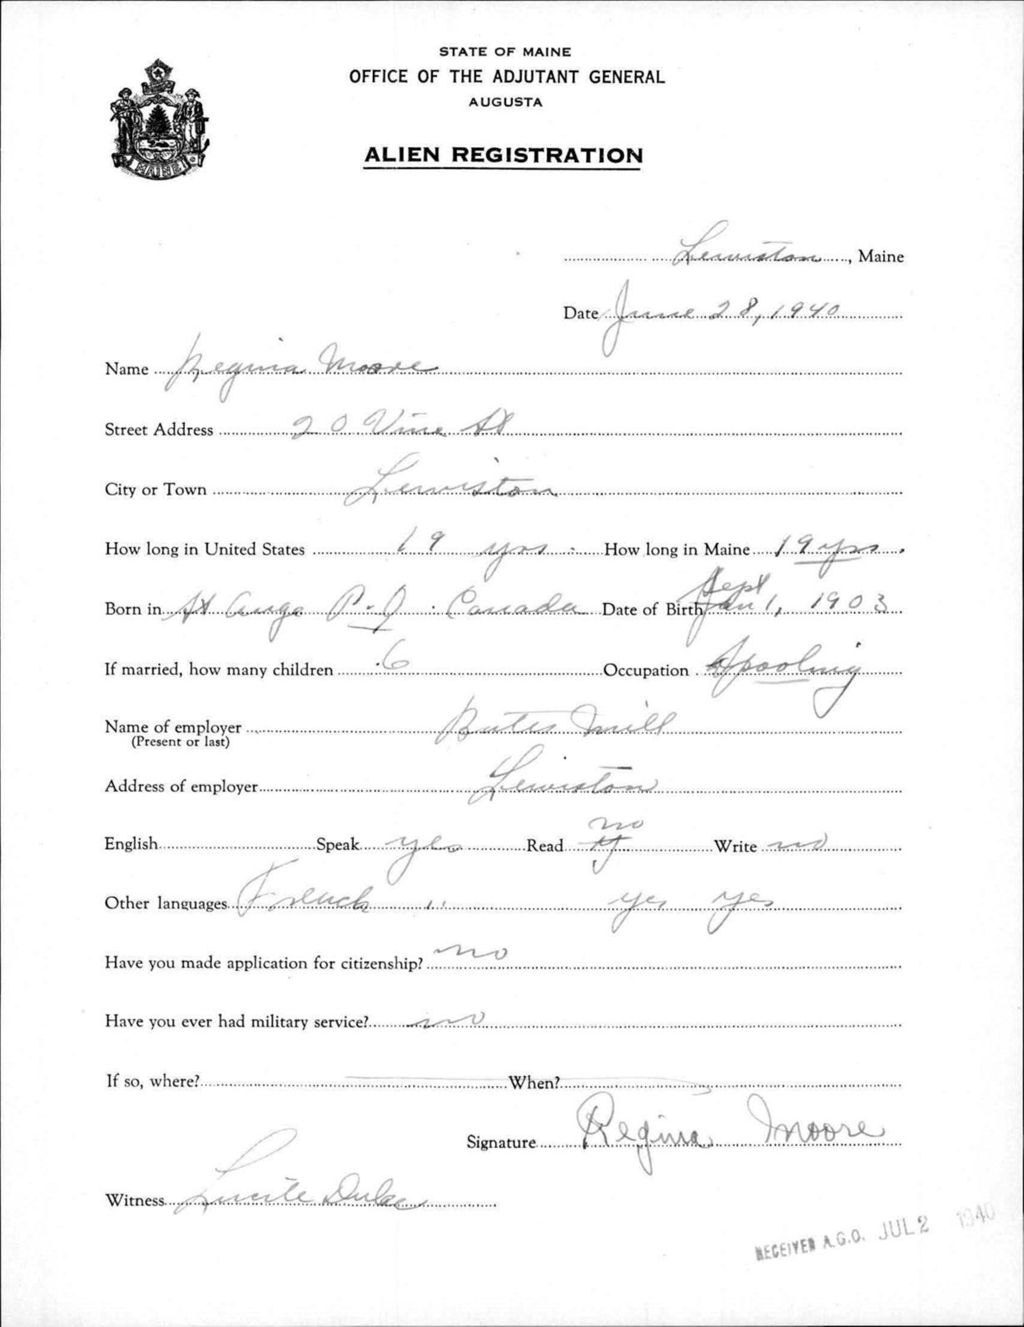 STATE OF MAINE
OFFICE OF THE ADJUTANT GENERAL
AUGUSTA
ALIEN REGISTRATION
MAINE
Lewiston, Maine
Date June 28, 1940
Name Regina Moore
Street Address 20 Vine St
City or Town Lewiston
How long in United States 19 yrs How long in Maine 19 yrs
Sept
Born in St P-Q Canada Date of Birth Jan 1, 1903
If married, how many children 6 Occupation Spooling
Name of employer Bates Mill
(Present or last)
Address of employer Lewiston
no
English Speak yes Read y Write no
Other languages French " yes yes
Have you made application for citizenship? no
Have you ever had military service? no
If so, where? When?
Signature Regina Moore
Witness Lucile
RECEIVED A.G.O. JUL 2 1940